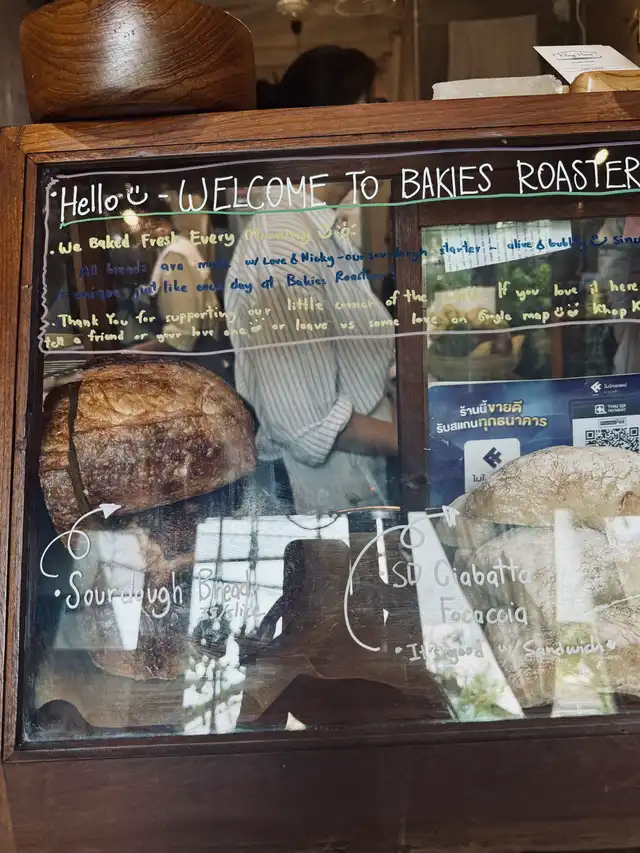 Hello - WELCOME TO BAKIES ROASTER
• We Baked Fresh Every Morning
All breads are made w/ Love & Nicky - our sourdough starter - alive & bubbly
unique, just like each day at Bakies Roaster
• Thank You for supporting our little corner of the If you love it here
tell a friend or your love one or leave us some love on Google map Khop K
ร้านนี้ขายดี
รับสแกนทุกธนาคาร
THAI QR
PAYMENT
• Sourdough Bread
SD Ciabatta
Focaccia
• It's good w/ Sandwich